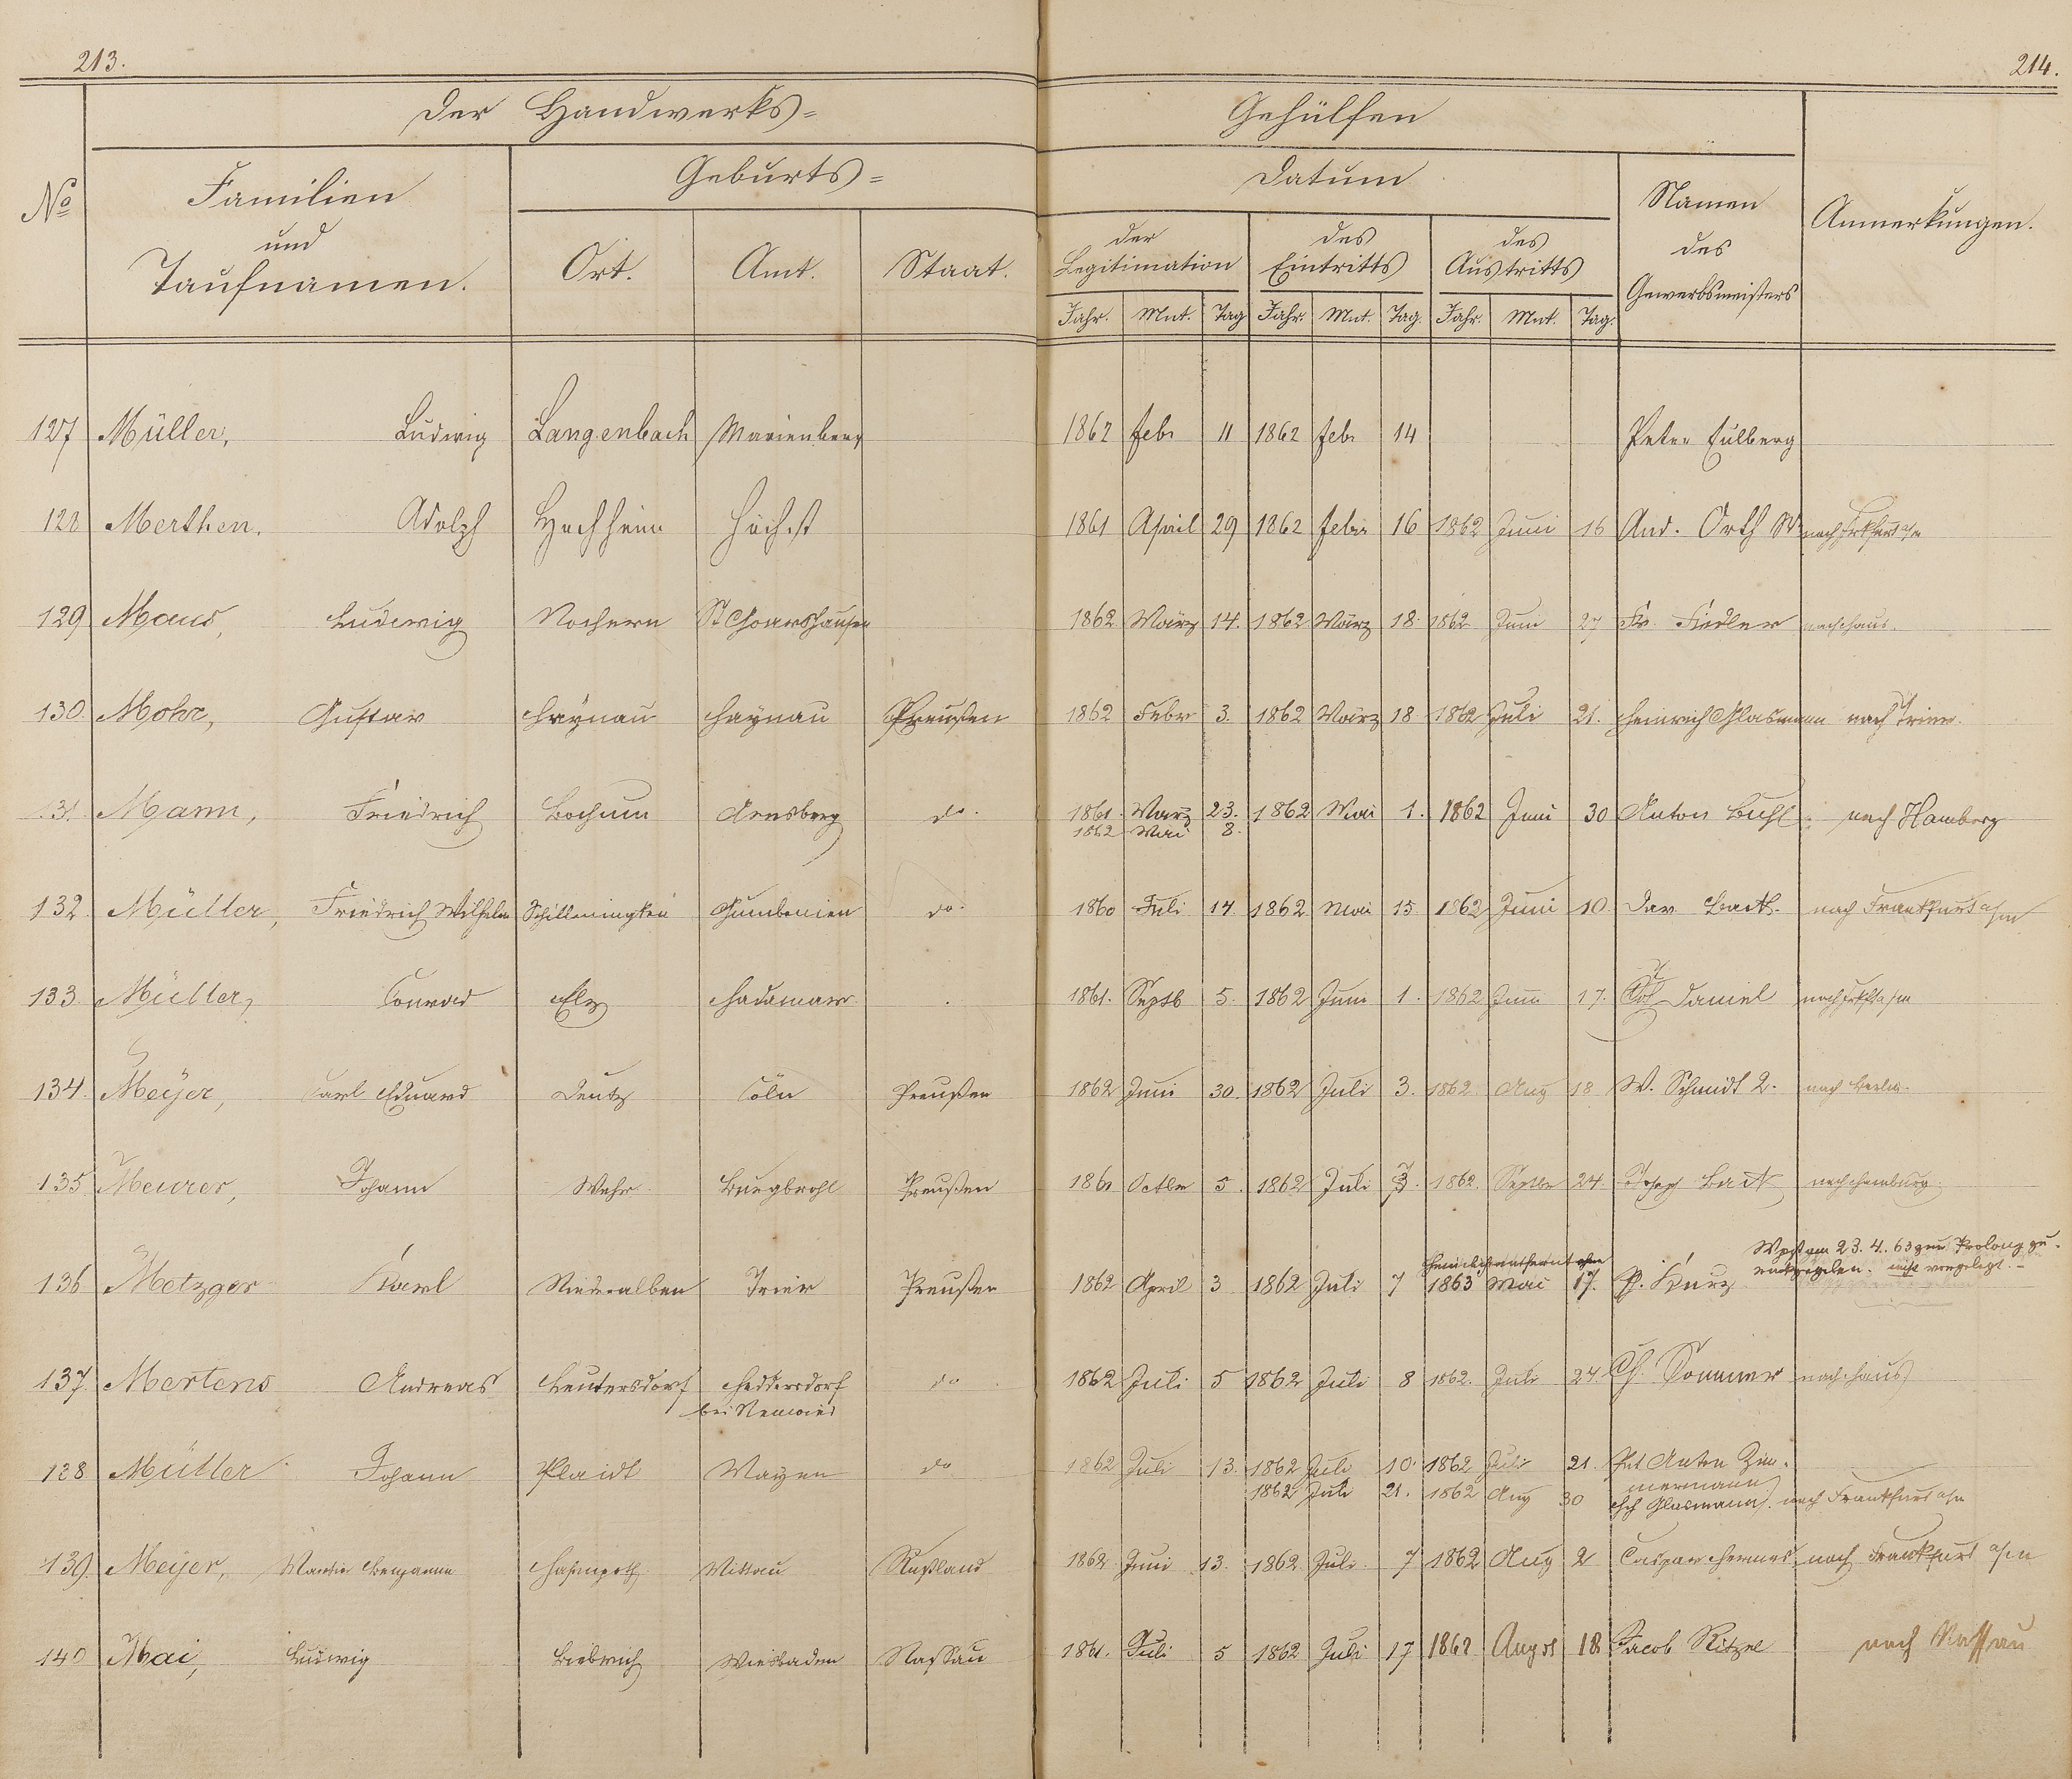 213.
214.
Der Handwerks=
Gehülfen
No
Familien
und
Taufnamen.
Geburts=
Ort.
Amt.
Staat.
Datum
der
Legitimation
des
Eintritts
des
Austritts
Jahr. Mnt. Tag Jahr. Mnt. Tag. Jahr. Mnt. Tag.
Namen
des
Gewerbsmeisters
Anmerkungen.
127 Müller, Ludwig Langenbach Marienberg 1862 febr 11 1862 febr 14 Peter Eulberg
128 Merthen. Adolph Hochheim Höchst 1861 April 29 1862 febr 16 1862 Juni 16 And. Orth
129 Maus, Ludwig Nochern St Goarshausen 1862 März 14. 1862 März 18. 1862 Juni 27 Fr. Fiedler nach Haus.
130. Mohr, Gustav Haynau Haynau Preußen 1862 Febr 3. 1862 März 18 1862 Juli 21. Heinrich Glasmann nach Trier.
131. Mann, Friedrich Bochum Arnsberg do. 1861. März 23. 1862 Mai 1. 1862 Juni 30 Anton Buhl nach Hamberg
1862 Mai 8.
132. Müller, Friedrich Wilhelm Schilleningken Gumbinnen do. 1860 Juli 14. 1862 Mai 15. 1862 Juni 10. Dav. nach Frankfurt a/m
133. Müller, Conrad Elz Hadamar 1861. Septb 5. 1862 Juni 1. 1862 Juni 17. Daniel nach Frkft a/m
134. Meÿer, Carl Eduard Deutz Cöln Preußen 1862 Juni 30. 1862 Juli 3. 1862 Aug 18 W. Schmidt 2. nach Berlin.
135 Meurer, Johann Wehr Burgbrohl Preußen 1861 Octbr 5. 1862 Juli 1862. Septbr 24. Joseph nach Hamburg.
heimlich entfernt
Wpß am 23.4.63 zum Prolong zu-
136 Metzger Karl Niederalben Trier Preußen 1862 April 3 1862 Juli 7 1863 Mai 17. P. Kurz nicht vorgelegt.
137. Mertens Andreas Leutersdorf Heddersdorf do 1862 Juli 5 1862 Juli 8 1862. Juli 24. Ch. Sommer nach Haus
bei Neuwied
138 Müller Johann Plaidt Mayen do 1862 Juli 13. 1862 Juli 10. 1862 Juli 21. Anton Zim-
mermann
1862 Juli 21. 1862 Aug 30 Hch Glasmann. nach Frankfurt a/m
139. Meÿer, Martin Benjamin Hasenpoth Mittau Rußland 1862. Juni 13. 1862 Juli 7 1862 Aug 2 Caspar Hermes nach Frankfurt a/m
140 Mai, Ludwig Biebrich Wiesbaden Nassau 1861. Juli 5 1862 Juli 17 1862 Augst 18. Jacob Ritzel nach Nassau